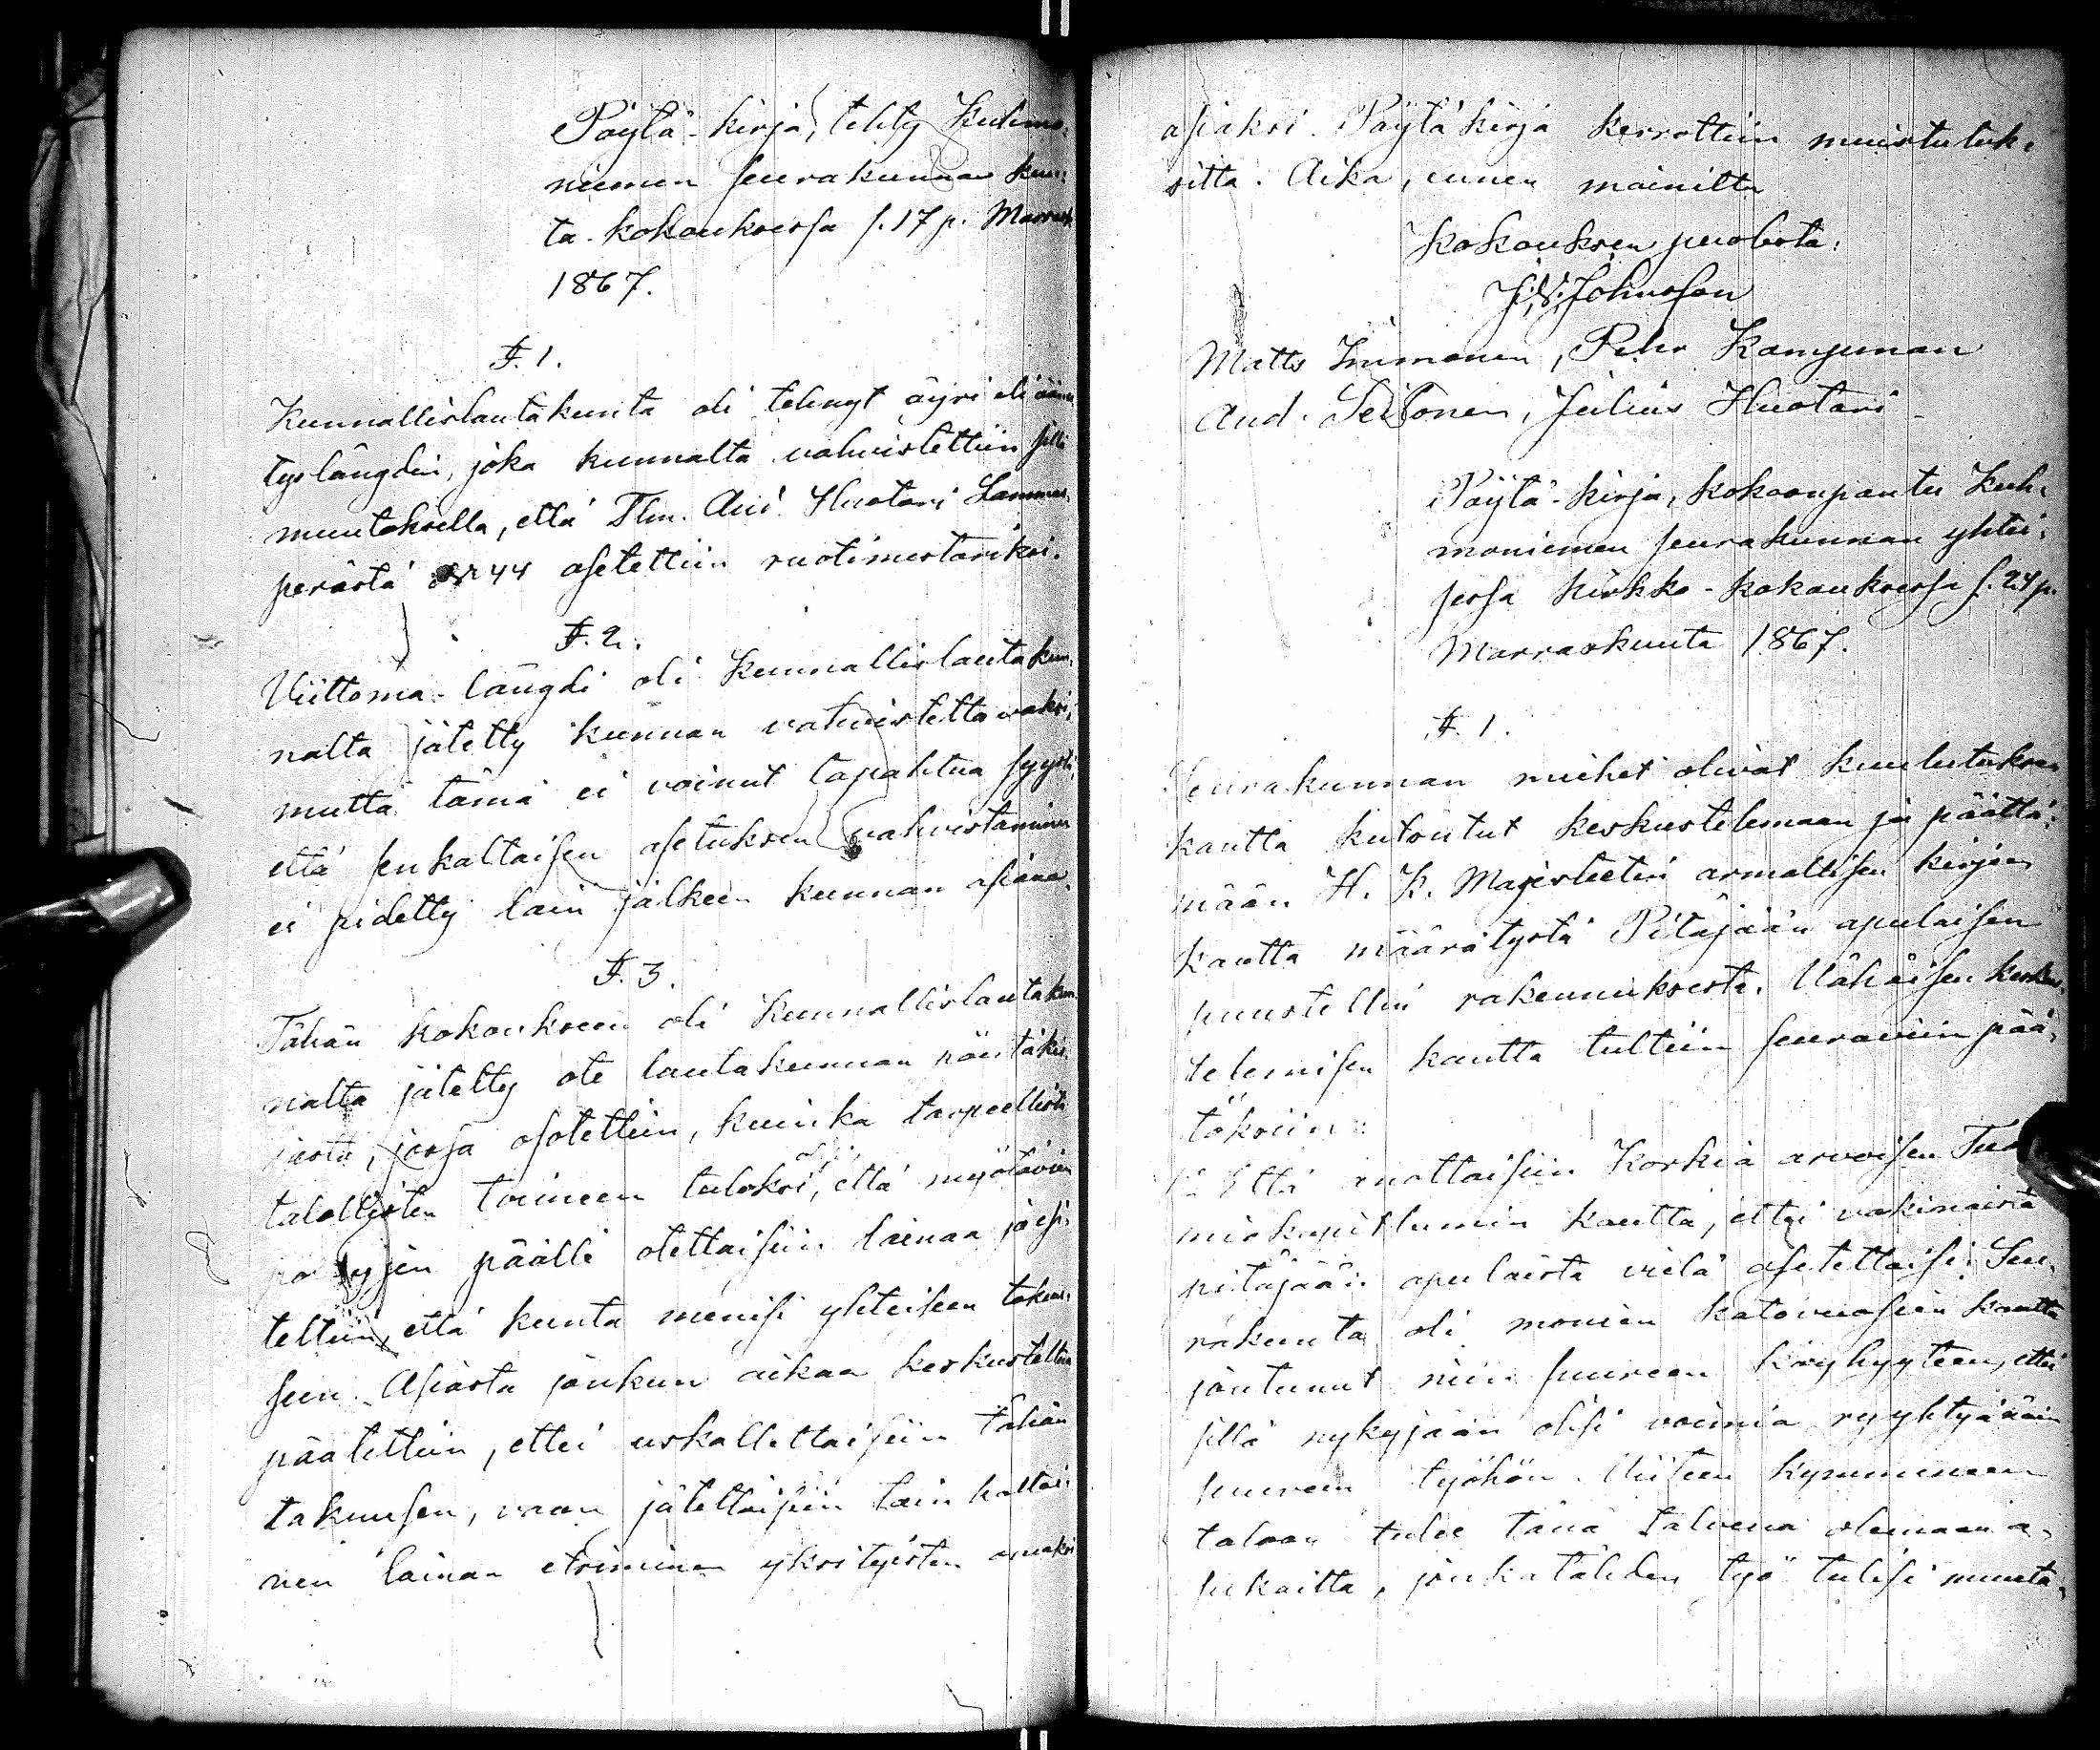 Pöytä-kirja, tehty Kuhmo-
niemen seurakunnan kun-
ta-kokouksessa s. 17 p. Marrask.
1867.
§. 1.
Kunnallislautakunta oli tehnyt äyri eli äänes-
tyslängdin, joka kunnalta vahvistettiin sillä
muutoksella, että Tlln. And. Huotari Lammas-
perästä N:o 44 asetettiin ruotimestariksi.
§. 2.
Viittoma-längdi oli Kunnallislautakun-
nalta jätetty kunnan vahvistettavaksi,
mutta tämä ei voinut tapahtua syystä,
että senkaltaisen asetuksen vahvistaminen
ei pidetty lain jälkeen kunnan asiana.
§. 3.
Tähän kokoukseen oli Kunnallislautakun-
nalta jätetty ote lautakunnan pöytäkir-
jasta, jossa osotettiin, kuinka tarpeellista
talollisten toimeen tuloksi olisi, että myötävien
päälle otettaisiin lainaa ja esi-
teltiin, että kunta menisi yhteiseen takuu-
seen. Asiasta jonkun aikaa keskusteltua
päätettiin, ettei uskallettaisiin tähän
takuusen, vaan jätettäisiin tain kaltai-
nen lainan etsiminen yksityisten omaksi
asiaksi. Pöytäkirja kerrottiin muistutuk-
sitta. Aika, ennen mainittu
Kokouksen puolesta:
J. W. Johnsson
Matts Immonen, Pehr Komjunan
And. Seilonen, Julius Huotari
Pöytä-kirja, kokoonpantu Kuh-
moniemen seurakunnan yhtei-
sessä kirkko-kokouksessa s. 24 p.
Marraskuuta 1867.
§. 1.
Seurakunnan miehet olivat kuulutuksen
kautta kutsutut keskustelemaan ja päättä-
mään H. K. Majesteetin armollisen kirjan
kautta määrätystä Pitäjään apulaisen
puustellin rakennuksesta. Vähäisen keskus-
telemisen kautta tultiin seuraviin pää-
töksiin:
Että anottaisiin Korkia arvoisen Tuo-
miokapitlumin kautta, ettei vakinaista
pitäjään apulaista vielä asetettaisi. Seu-
rakunta oli monien katovuosien kautta
joutunut niin suureen köyhyyteen, ettei
sillä nykyjään olisi voimia ryyhtyäään
suureen työhön. Viiteen kymmeneen
taloon tulee tänä talvena olemaan a-
sukaitta, jonkatähden työ tulisi muuta-